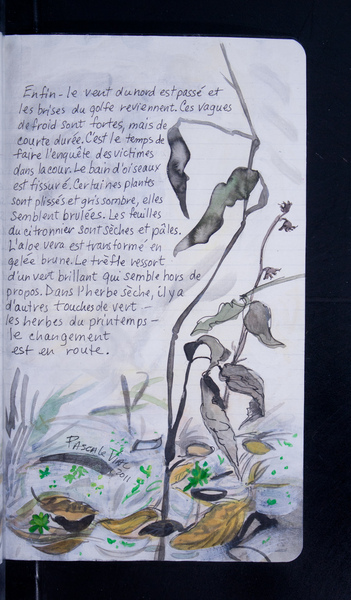 Enfin - le vent du nord est passé et
les brises du golfe reviennent. Ces vagues
de froid sont fortes, mais de
courte durée. C'est le temps de
faire l'enquête des victimes
dans la cour. Le bain d'oiseaux
est fissuré. Certaines plantes
sont plissés et gris sombre, elles
semblent brulées. Les feuilles
du citronnier sont sèches et pâles.
L'aloe vera est transformé en
gelée brune. Le trèfle ressort
d'un vert brillant qui semble hors de
propos. Dans l'herbe sèche, il y a
d'autres touches de vert -
les herbes du printemps -
le changement
est en route.
2011